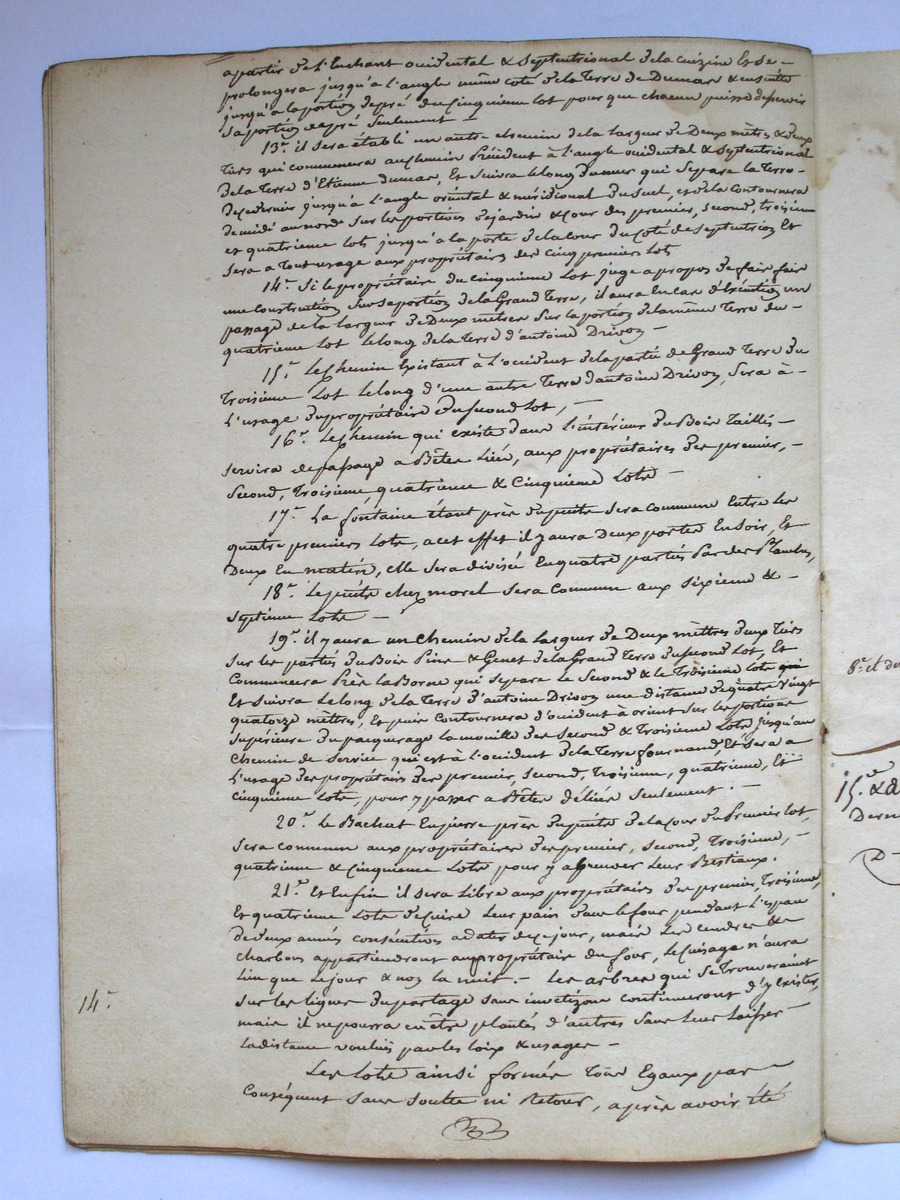 a partir de l'Enchant occidental & Septentrional de la cuizine Et se
prolongera jusqu'à l'angle même coté de la Terre de Dumas & ensuite
jusqu'à la portion de pré du Cinquieme lot pour que chacun puisse desservir
sa portion de pré seulement —
13.° il sera établi un autre chemin de la largeur de Deux mètres & deux
Tiers qui commencera au chemin Précédent à l'angle occidental & Septentrional
de la Terre d'Etienne dumas, Et suivra le long du mur qui separe la Terre
de ce dernier jusqu'à l'angle oriental & méridional du suel, et de la Contournera
de midi au nord sur les portions de jardin & cour des premier, second, troisieme
et quatrieme lots jusqu'à la porte de la cour du coté de septentrion Et
sera a Tout usage aux propriétaires des Cinq premiers lots
14.° Si le propriétaire du cinquieme Lot juge a propos de fair fair
une construction sur sa portion de la Grand Terre, il aura En cas d'Exécution un
passage de la largeur de Deux mètres sur la portion de la même Terre du
quatrieme Lot le long de la Terre d'antoine Drivon —
15.° Le Chemin Existant à l'occident de la partie de Grand Terre du
Troisieme Lot le long d'une autre Terre d'antoine Drivon, sera à
L'usage du propriétaire du second Lot, —
16.° Le Chemin qui existe dans l'intérieur du Bois Taillis —
servira de passage a Bêtes Liées, aux propriétaires des premier, —
Second, Troisieme, quatrieme & Cinquieme Lots —
17.° La fontaine étant près du puits sera Commune Entre les
quatre premiers Lots, a cet effet il y aura Deux portes En soir, Et
Deux En matin, elle sera divisée En quatre parties Par des Plambes,
18.° Le puits chez morel sera Commun aux sixieme &
septieme Lots —
19.° il y aura un Chemin de la Largeur de Deux mètres deux Tiers
sur les parties du Bois Pins & Genet de la Grand Terre du second Lot, Et
Commencera Près la Borne qui separe le Second & le Troisieme Lots
Et suivra le long de la Terre d'antoine Drivon une distance de quatre vingt
quatorze mètres, Et puis Contournera d'occident à orient sur les portions
supérieure du paquerage la mouille des second & Troisieme Lots jusqu'au
Chemin de service qui est à l'occident de la Terre fournand, Et sera a
L'usage des propriétaires des premier, second, Troisieme, quatrieme, Et
Cinquieme Lots, pour y passer a Bêtes déliées seulement. —
20.° Le Bachat En pierre près du puits de la cour du Premier lot,
sera commun aux propriétaires des premier, second, Troisieme, —
quatrieme & Cinquieme Lots pour y abreuver Leur Bestiaux.
21.° Et Enfin il sera Libre aux propriétaires des premier, Troisieme,
Et quatrieme Lots de cuire Leur pain dans le four pendant l'espace
de deux années consécutives a dater de ce jour, mais les cendres &
charbons appartiendront au propriétaire du four, le cuisage n'aura
Lieu que le jour & non la nuit. — Les arbres qui se trouveraient
sur les lignes du partage sans invetizons continueront d'y exister,
mais il ne pourra en être plantés d'autres sans Leur Laisser
La distance voulue par les loix & usages —
14.°
Les Lots ainsi formés Tous Egaux par
Conséquent sans soulte ni Retour, après avoir été
8.° et du
15.° & d
Dern
D